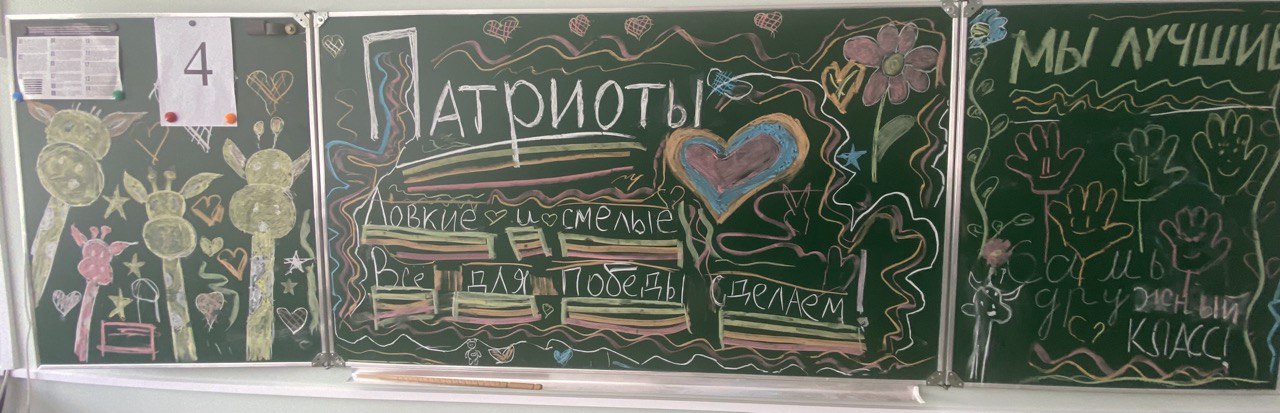 4
Патриоты
Ловкие и смелые
Все для Победы сделаем!
Мы лучшие
самый
дружный
класс!